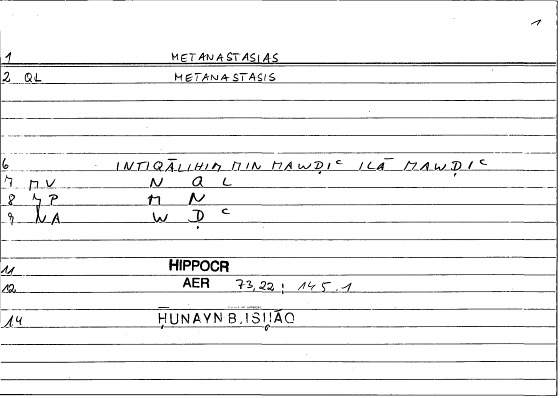 1
1 METANASTASIAS
2 QL METANASTASIS
6 INTIQĀLIHIM MIN MAWḌIʿ ILĀ MAWḌIʿ
7 MV N Q L
8 MP M N
9 NA W Ḍ ʿ
11 HIPPOCR
12 AER 73,22; 145.1
14 ḤUNAYN B. ISḤĀQ